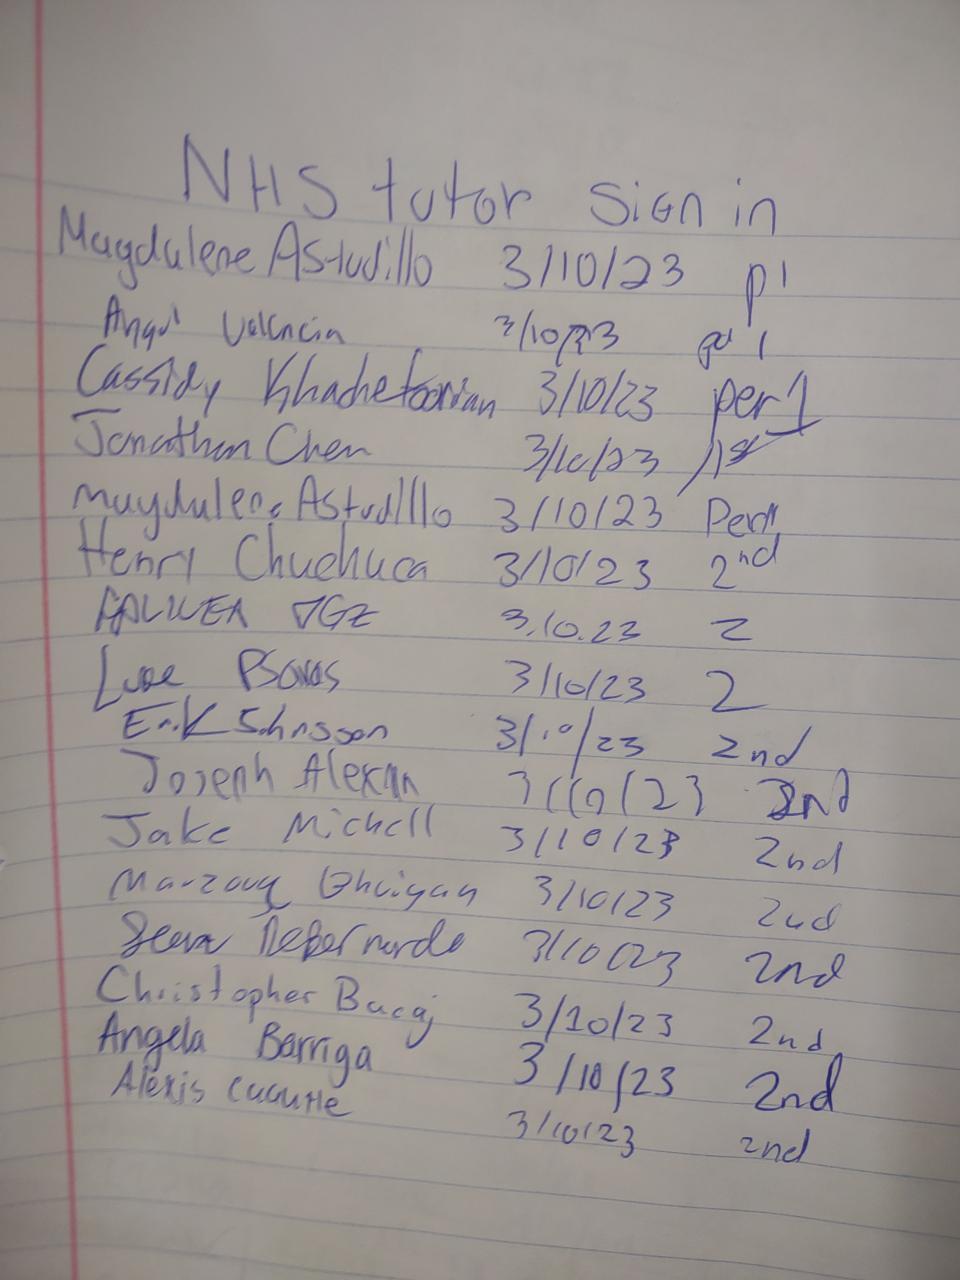 NHS tutor sign in
Magdalene Astudillo 3/10/23 p1
Valencia 3/10/23 1
Cassidy Khachetoorian 3/10/23 per 1
Jonathan Chen 3/10/23 1st
Magdalene Astudillo 3/10/23 Per 1
Henry 3/10/23 2nd
3.10.23 2
3/10/23 2
Erik Johnsson 3/10/23 2nd
Joseph 3/10/23 2nd
Jake Michell 3/10/23 2nd
Bhuiyan 3/10/23 2nd
3/10/23 2nd
Christopher Bucaj 3/10/23 2nd
Angela Barriga 3/10/23 2nd
Alexis 3/10/23 2nd